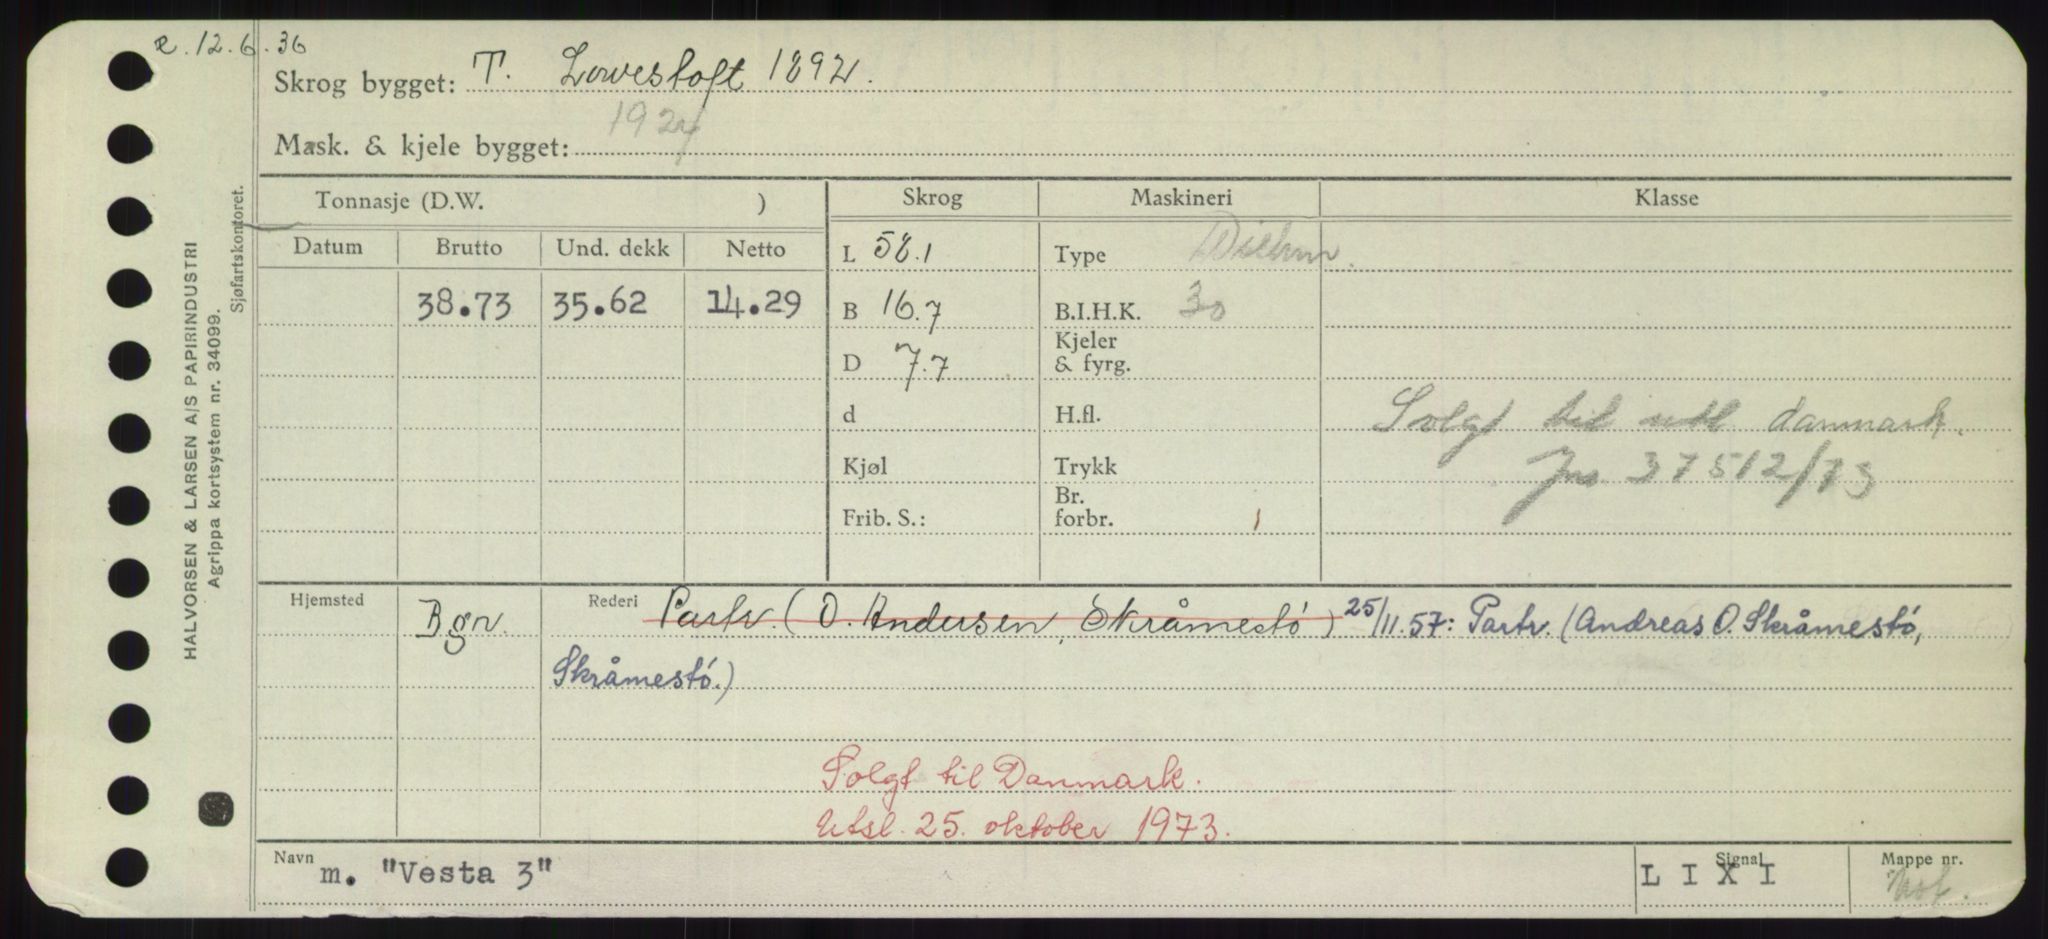 r. 12.6.36
Skrog bygget: T. Lowestoft 1892.
Mask. & kjele bygget: 1924
Tonnasje (D.W. )
Skrog
Maskineri
Klasse
Datum
Brutto
Und. dekk
Netto
38.73
35.62
14.29
L 58.1
B 16.7
D 7.7
d
Kjøl
Frib. S.:
Type
B.I.H.K. 30
Kjeler
& fyrg.
H.fl.
Trykk
Br.
forbr.
Solgt til utl danmark.
Jnr. 37512/73
Hjemsted
Bgn.
Rederi Partr. (O. Andersen, Skråmestö) 25/11.57: Partr. (Andreas O. Skråmestö,
Skråmestö.)
Solgt til Danmark.
Utsl. 25. oktober 1973.
Navn m. "Vesta 3"
Signal L I X I
Mappe nr.
HALVORSEN & LARSEN A/S PAPIRINDUSTRI
Agrippa kortsystem nr. 34099.
Sjøfartskontoret.